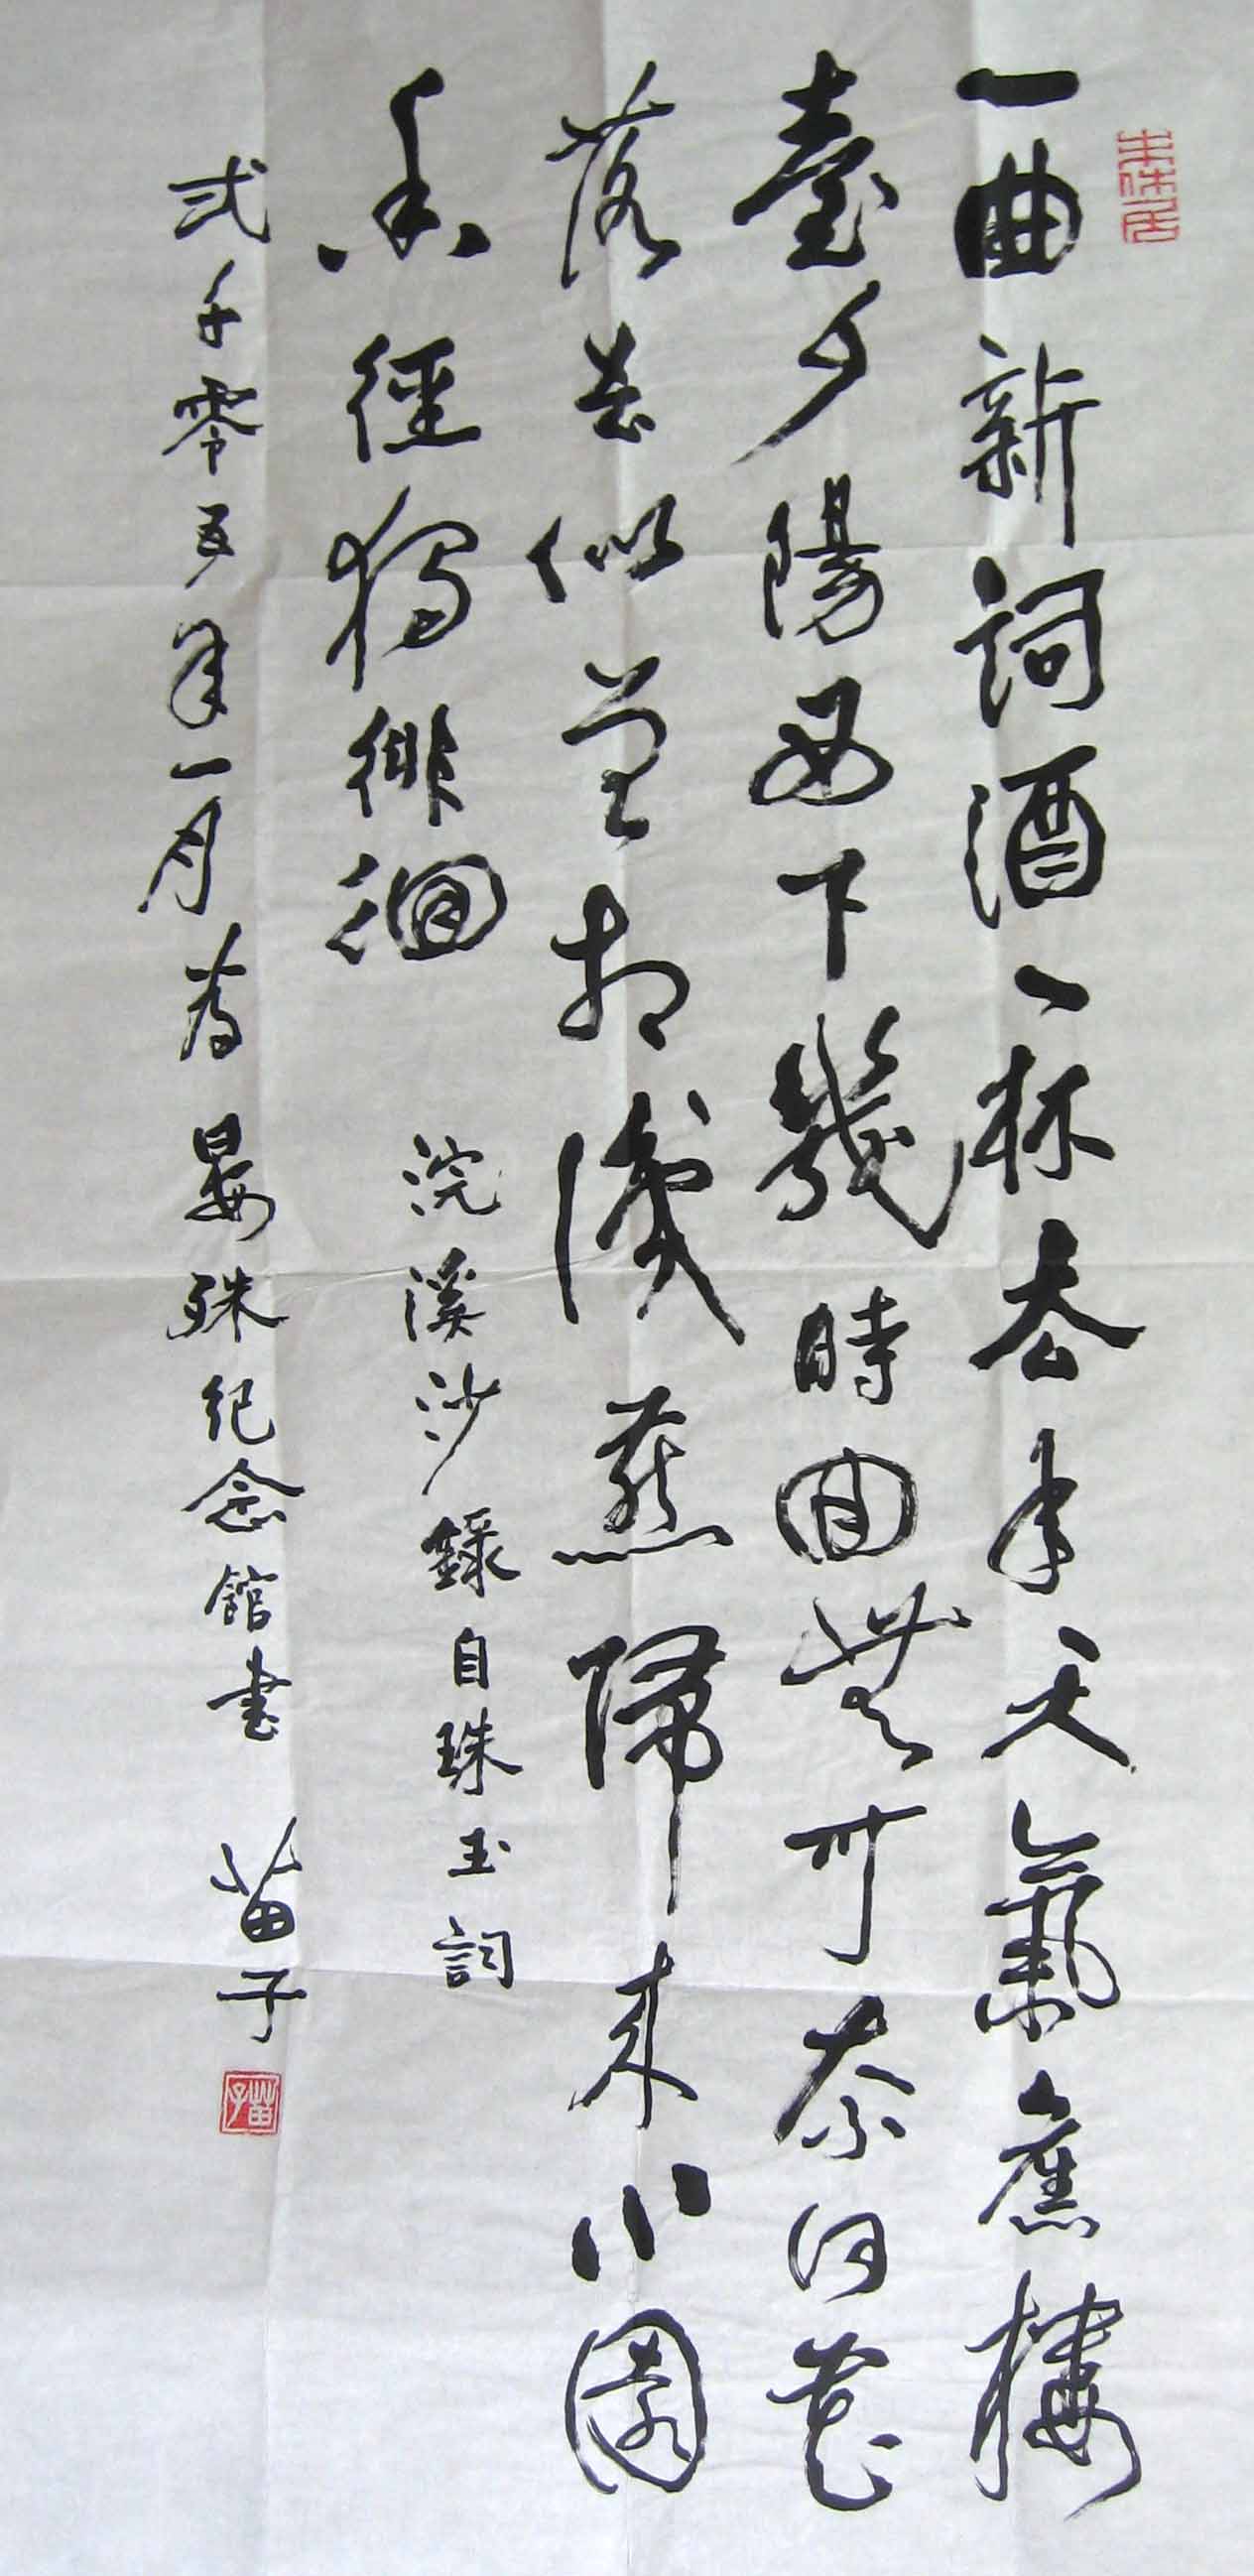 一曲新詞酒一杯去年天氣舊樓
臺夕陽西下幾時回無可奈何花
落去似曾相識燕歸來小園
香徑獨徘徊
浣溪沙錄自珠玉詞
弍千零五年一月為晏殊紀念館書 苗子
苗子